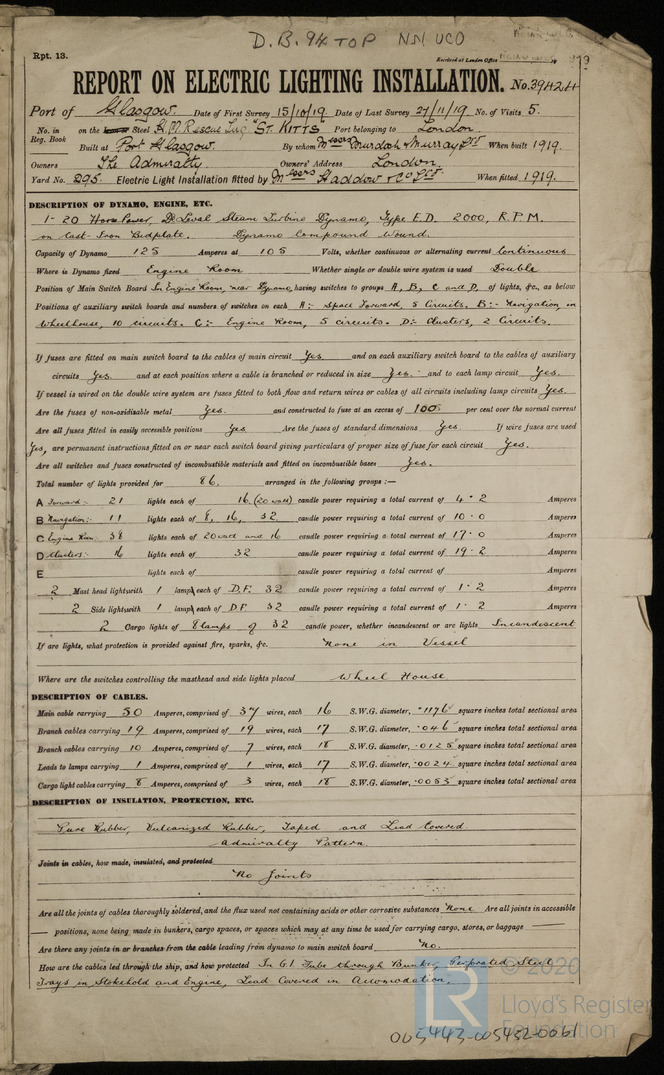 D.B. 94 TOP
Rpt. 13.
Received at London Office
REPORT ON ELECTRIC LIGHTING INSTALLATION. No. 39424
Port of Glasgow. Date of First Survey 15/10/19 Date of Last Survey 27/11/19. No. of Visits 5.
No. in Reg. Book on the Iron or Steel H.M. Rescue Tug "ST. KITTS Port belonging to London.
Built at Port Glasgow. By whom Messrs Murdoch & Murray Ltd When built 1919.
Owners The Admiralty. Owners' Address London.
Yard No. 295. Electric Light Installation fitted by Messrs Haddow & Co Ltd. When fitted 1919.
DESCRIPTION OF DYNAMO, ENGINE, ETC.
1- 20 Horse Power, De Laval Steam Turbine Dynamo, Type E.D. 2000, R.P.M.
on Cast-Iron Bedplate. Dynamo Compound Wound.
Capacity of Dynamo 125 Amperes at 105 Volts, whether continuous or alternating current Continuous
Where is Dynamo fixed Engine Room Whether single or double wire system is used Double
Position of Main Switch Board In Engine Room, near Dynamo, having switches to groups A, B, C and D, of lights, &c., as below
Positions of auxiliary switch boards and numbers of switches on each A:- Space Forward, 5 Circuits. B:- Navigation, in
Wheelhouse, 10 circuits. C:- Engine Room, 5 circuits. D:- Clusters, 2 Circuits.
If fuses are fitted on main switch board to the cables of main circuit Yes. and on each auxiliary switch board to the cables of auxiliary
circuits Yes. and at each position where a cable is branched or reduced in size Yes. and to each lamp circuit Yes.
If vessel is wired on the double wire system are fuses fitted to both flow and return wires or cables of all circuits including lamp circuits Yes.
Are the fuses of non-oxidisable metal Yes. and constructed to fuse at an excess of 100 per cent over the normal current
Are all fuses fitted in easily accessible positions Yes Are the fuses of standard dimensions Yes If wire fuses are used
Yes, are permanent instructions fitted on or near each switch board giving particulars of proper size of fuse for each circuit Yes.
Are all switches and fuses constructed of incombustible materials and fitted on incombustible bases Yes.
Total number of lights provided for 86. arranged in the following groups :—
A Forward:- 21 lights each of 16 (20 watt) candle power requiring a total current of 4·2 Amperes
B Navigation:- 11 lights each of 8, 16, 32 candle power requiring a total current of 10·0 Amperes
C Engine Rm. 38 lights each of 20 watt and 16 candle power requiring a total current of 17·0 Amperes
D Clusters:- 16 lights each of 32 candle power requiring a total current of 19·2 Amperes
E lights each of candle power requiring a total current of Amperes
2 Mast head lights with 1 lamp each of D.F. 32 candle power requiring a total current of 1·2 Amperes
2 Side lights with 1 lamp each of D.F 32 candle power requiring a total current of 1·2 Amperes
2 Cargo lights of 8 lamps of 32 candle power, whether incandescent or arc lights Incandescent
If arc lights, what protection is provided against fire, sparks, &c. None in Vessel
Where are the switches controlling the masthead and side lights placed Wheel House
DESCRIPTION OF CABLES.
Main cable carrying 50 Amperes, comprised of 37 wires, each 16 S.W.G. diameter, ·1176 square inches total sectional area
Branch cables carrying 19 Amperes, comprised of 19 wires, each 17 S.W.G. diameter, ·046 square inches total sectional area
Branch cables carrying 10 Amperes, comprised of 7 wires, each 18 S.W.G. diameter, ·0125 square inches total sectional area
Leads to lamps carrying 1 Amperes, comprised of 1 wires, each 17 S.W.G. diameter, ·0024 square inches total sectional area
Cargo light cables carrying 8 Amperes, comprised of 3 wires, each 18 S.W.G. diameter, ·0053 square inches total sectional area
DESCRIPTION OF INSULATION, PROTECTION, ETC.
Pure Rubber, Vulcanized Rubber, Taped and Lead Covered
Admiralty Pattern.
Joints in cables, how made, insulated, and protected
No Joints
Are all the joints of cables thoroughly soldered, and the flux used not containing acids or other corrosive substances None Are all joints in accessible
positions, none being made in bunkers, cargo spaces, or spaces which may at any time be used for carrying cargo, stores, or baggage
Are there any joints in or branches from the cable leading from dynamo to main switch board No.
How are the cables led through the ship, and how protected In G.I Tube through Bunker, Perforated Steel
Trays in Stokehold and Engine, Lead Covered in Accomodation.
© 2020
LR
Lloyd's Register
Foundation
005443-005452-0061